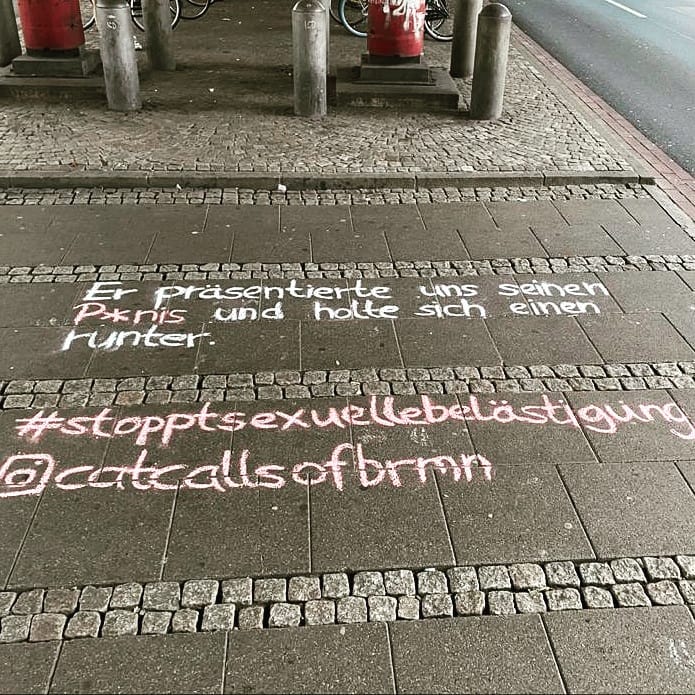 Er präsentierte uns seinen
P*nis und holte sich einen
runter.
#stopptsexuellebelästigung
@catcallsofbrmn